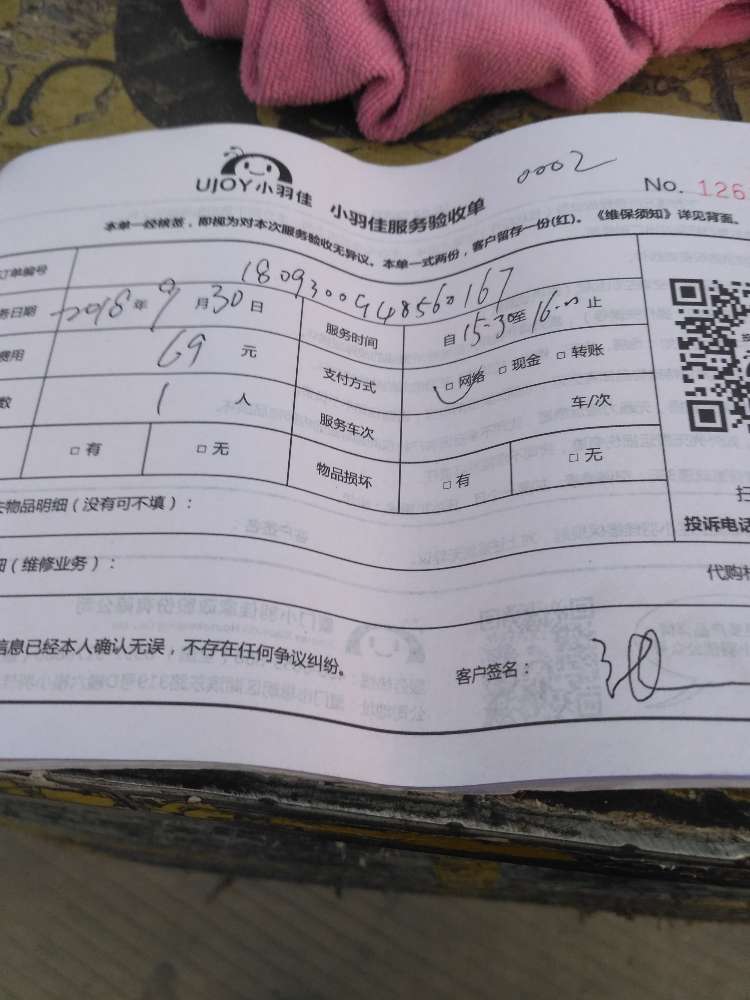 0002
UJOY小羽佳 小羽佳服务验收单
No. 126
本单一经核签，即视为对本次服务验收无异议。本单一式两份，客户留存一份(红)。《维保须知》详见背面。
订单编号 1809300948560167
务日期 2018年9月30日 服务时间 自15:30至16:00止
费用 69元 支付方式 □网络 □现金 □转账
数 1人 服务车次 车/次
□有 □无 物品损坏 □有 □无
物品明细（没有可不填）：
投诉电话
（维修业务）：
代购
信息已经本人确认无误，不存在任何争议纠纷。 客户签名：